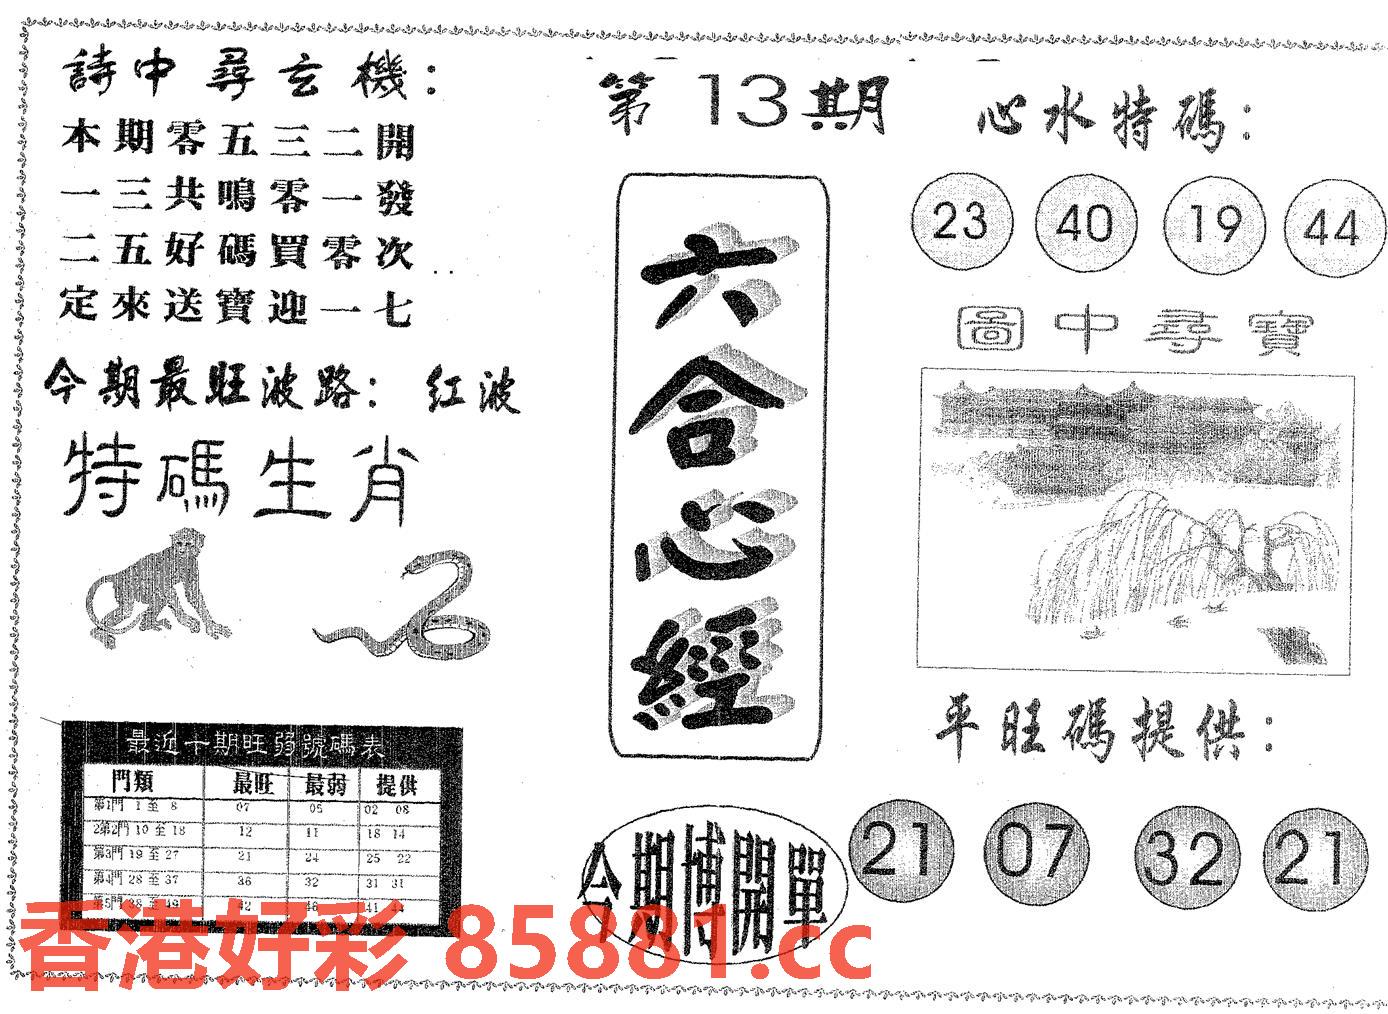 詩中尋玄機：
本期零五三二開
一三共鳴零一發
二五好碼買零次
定來送寶迎一七
今期最旺波路：紅波
特碼生肖
最近十期旺弱號碼表
門類 最旺 最弱 提供
第1門 1至 8 07 05 02 08
2第2門 10至18 12 11 18 14
第3門 19至27 21 24 25 22
第4門 28至37 36 32 31 31
第5門 38至49 42 46 41 44
第13期
六合心經
今期博開單
心水特碼：
23 40 19 44
圖中尋寶
平旺碼提供：
21 07 32 21
香港好彩 85881.cc